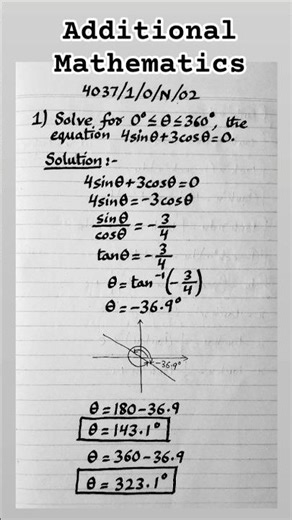 Additional
Mathematics
4037/1/O/N/02
1) Solve for 0° ≤ θ ≤ 360°, the
equation 4sinθ+3cosθ=0.
Solution:-
4sinθ+3cosθ=0
4sinθ=-3cosθ
sinθ/cosθ = -3/4
tanθ = -3/4
θ = tan⁻¹(-3/4)
θ = -36.9°
-36.9°
θ = 180-36.9
θ = 143.1°
θ = 360-36.9
θ = 323.1°